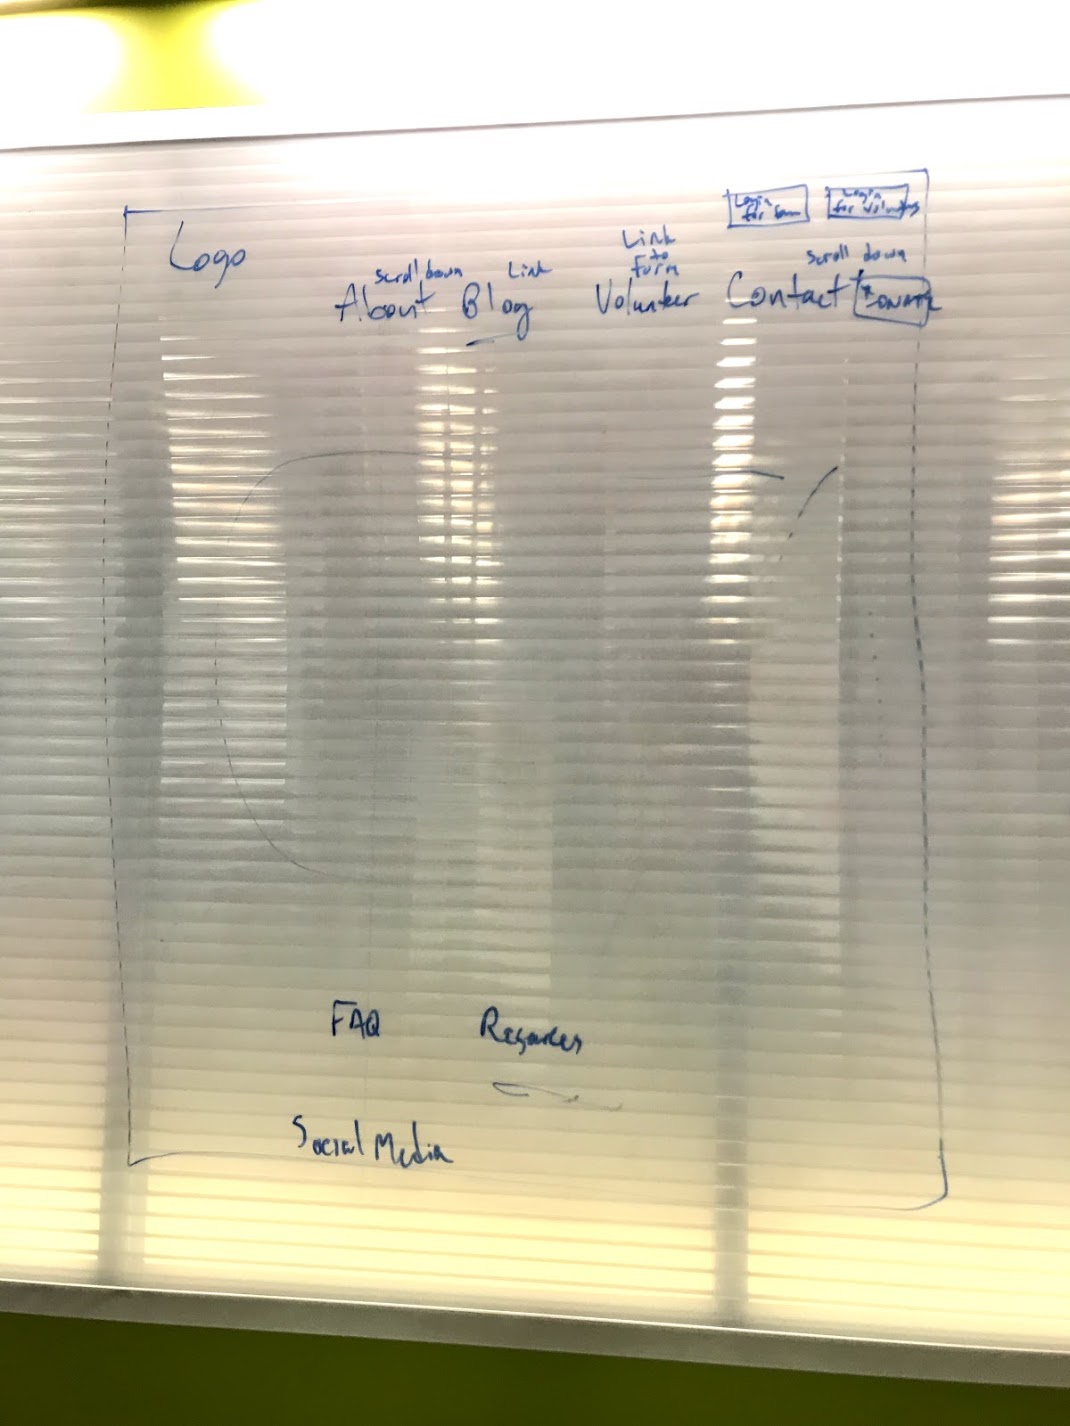 Login
for
Login
for Volunteers
Logo
scroll down
About
Link
Blog
Link
to
form
Volunteer
scroll down
Contact
FAQ
Social Media